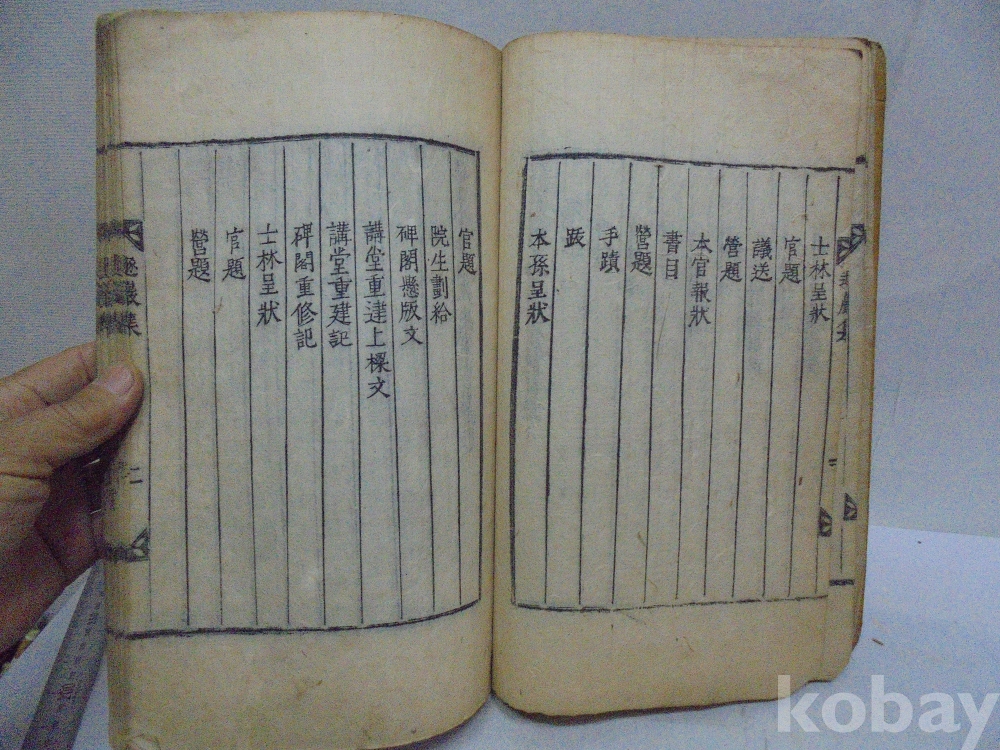 士林呈狀
官題
議送
營題
本官報狀
書目
營題
手蹟
跋
本孫呈狀
官題
院生劃給
碑閣懸版文
講堂重建上樑文
講堂重建記
碑閣重修記
士林呈狀
官題
營題
巖集
二
kobay